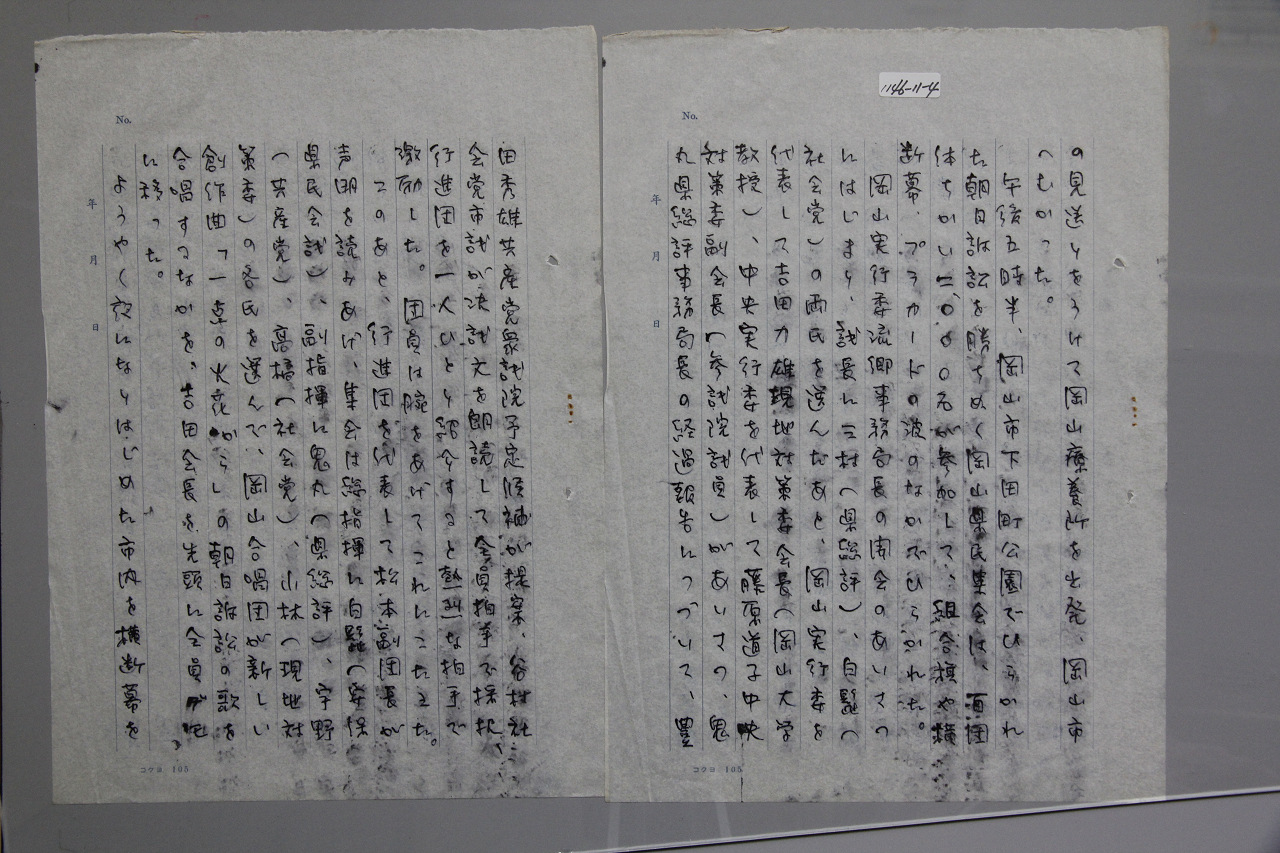 1146-11-4
No.
年 月 日
の見送りをうけて岡山療養所を出発、岡山市
へむかった。
午後五時半、岡山市下田町公園でひらかれ
た朝日訴訟を勝ちぬく岡山県民集会は、百団
体ちかい二、〇〇〇名が参加して、組合旗や横
断幕、プラカードの波のなかでひらかれた。
岡山実行委流郷事務局長の開会のあいさつ
にはじまり、議長に三村(県総評)、白髭(
社会党)の両氏を選んだあと、岡山実行委を
代表して吉田力雄現地対策委会長(岡山大学
教授)、中央実行委を代表して藤原道子中央
対策委副会長(参議院議員)があいさつ、鬼
丸県総評事務局長の経過報告につづいて、豊
コクヨ 105
No.
年 月 日
田秀雄共産党衆議院予定候補が提案、谷村社
会党市議が決議文を朗読して全員拍手で採択、
行進団を一人ひとり紹介すると熱烈な拍手で
激励した。団員は腕をあげてこれにこたえた。
このあと、行進団を代表して松本副団長が
声明を読みあげ、集会は総指揮に白髭(安保
県民会議)、副指揮に鬼丸(県総評)、宇野
(共産党)、高橋(社会党)、小林(現地対
策委)の各氏を選んで、岡山合唱団が新しい
創作曲「一点の火花から」の朝日訴訟の歌を
合唱するなかを、吉田会長を先頭に全員デモ
に移った。
ようやく夜になりはじめた市内を横断幕を
コクヨ 105